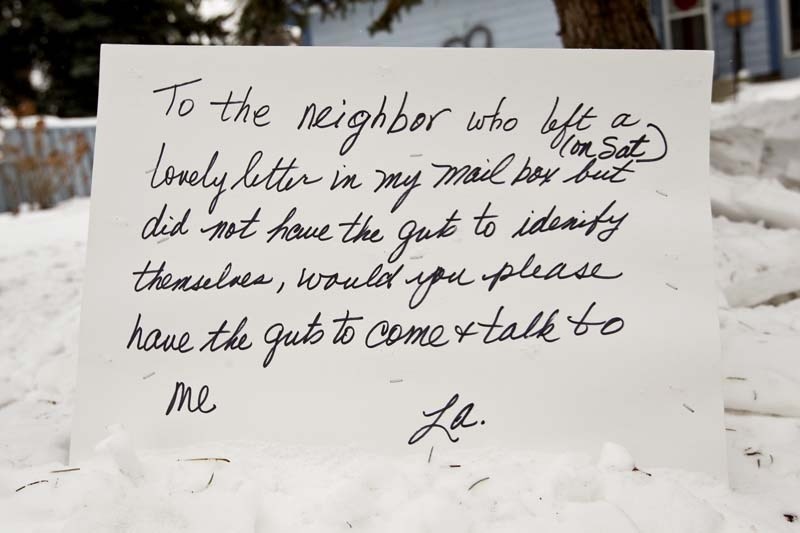 To the neighbor who left a
(on Sat)
lovely letter in my mail box but
did not have the guts to idenify
themselves, would you please
have the guts to come & talk to
me
La.